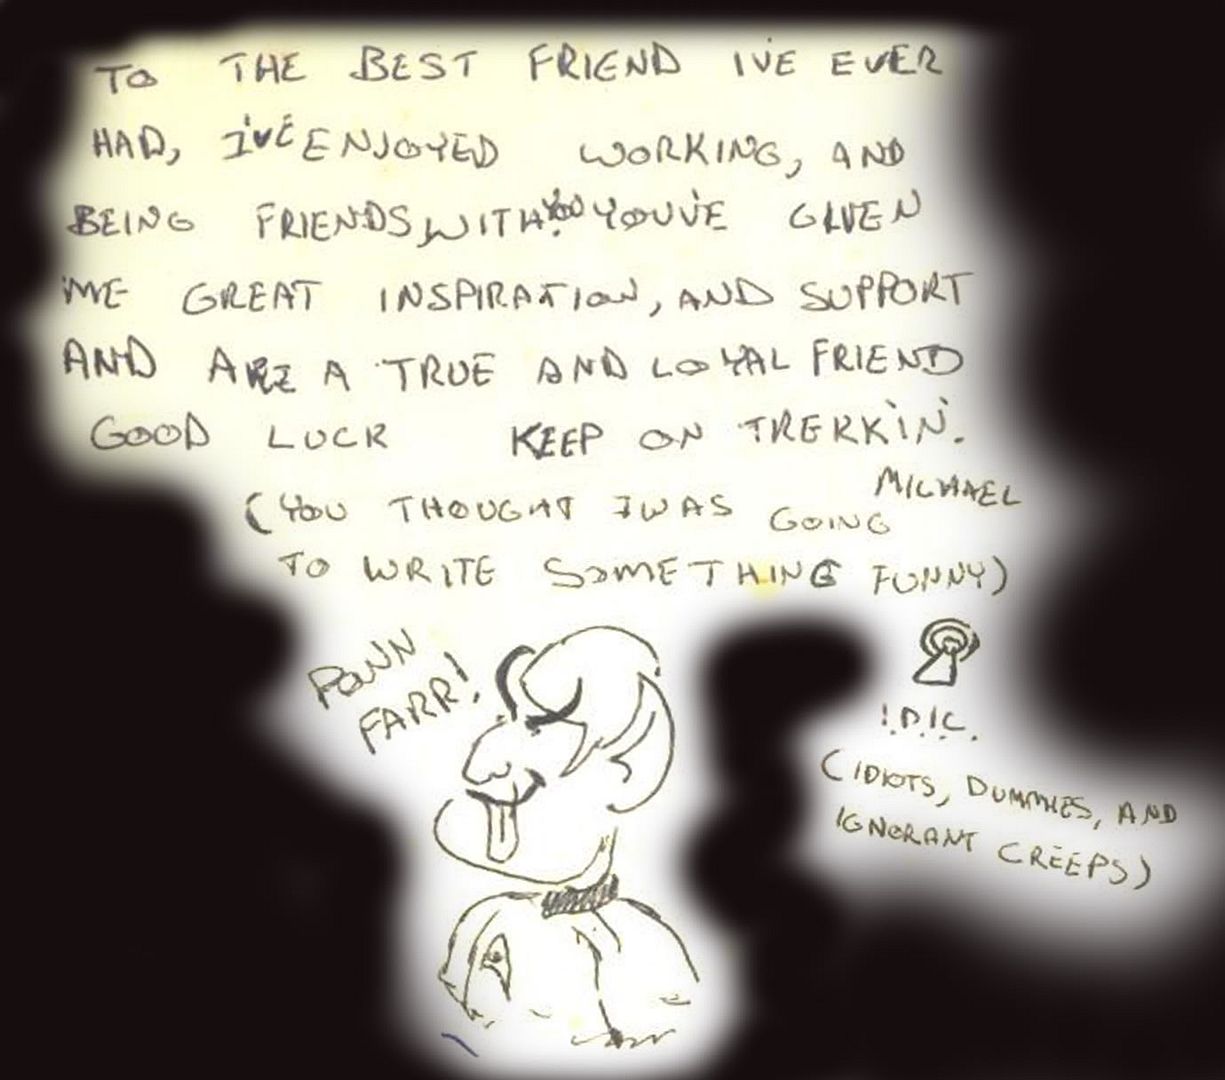 TO THE BEST FRIEND I'VE EVER
HAD, I'VE ENJOYED WORKING, AND
BEING FRIENDS WITH YOU YOU'VE GIVEN
ME GREAT INSPIRATION, AND SUPPORT
AND ARE A TRUE AND LOYAL FRIEND
GOOD LUCK KEEP ON TREKKIN'.
MICHAEL
(YOU THOUGHT I WAS GOING
TO WRITE SOMETHING FUNNY)
PONN
FARR!
I.D.I.C.
(IDIOTS, DUMMIES, AND
IGNORANT CREEPS)